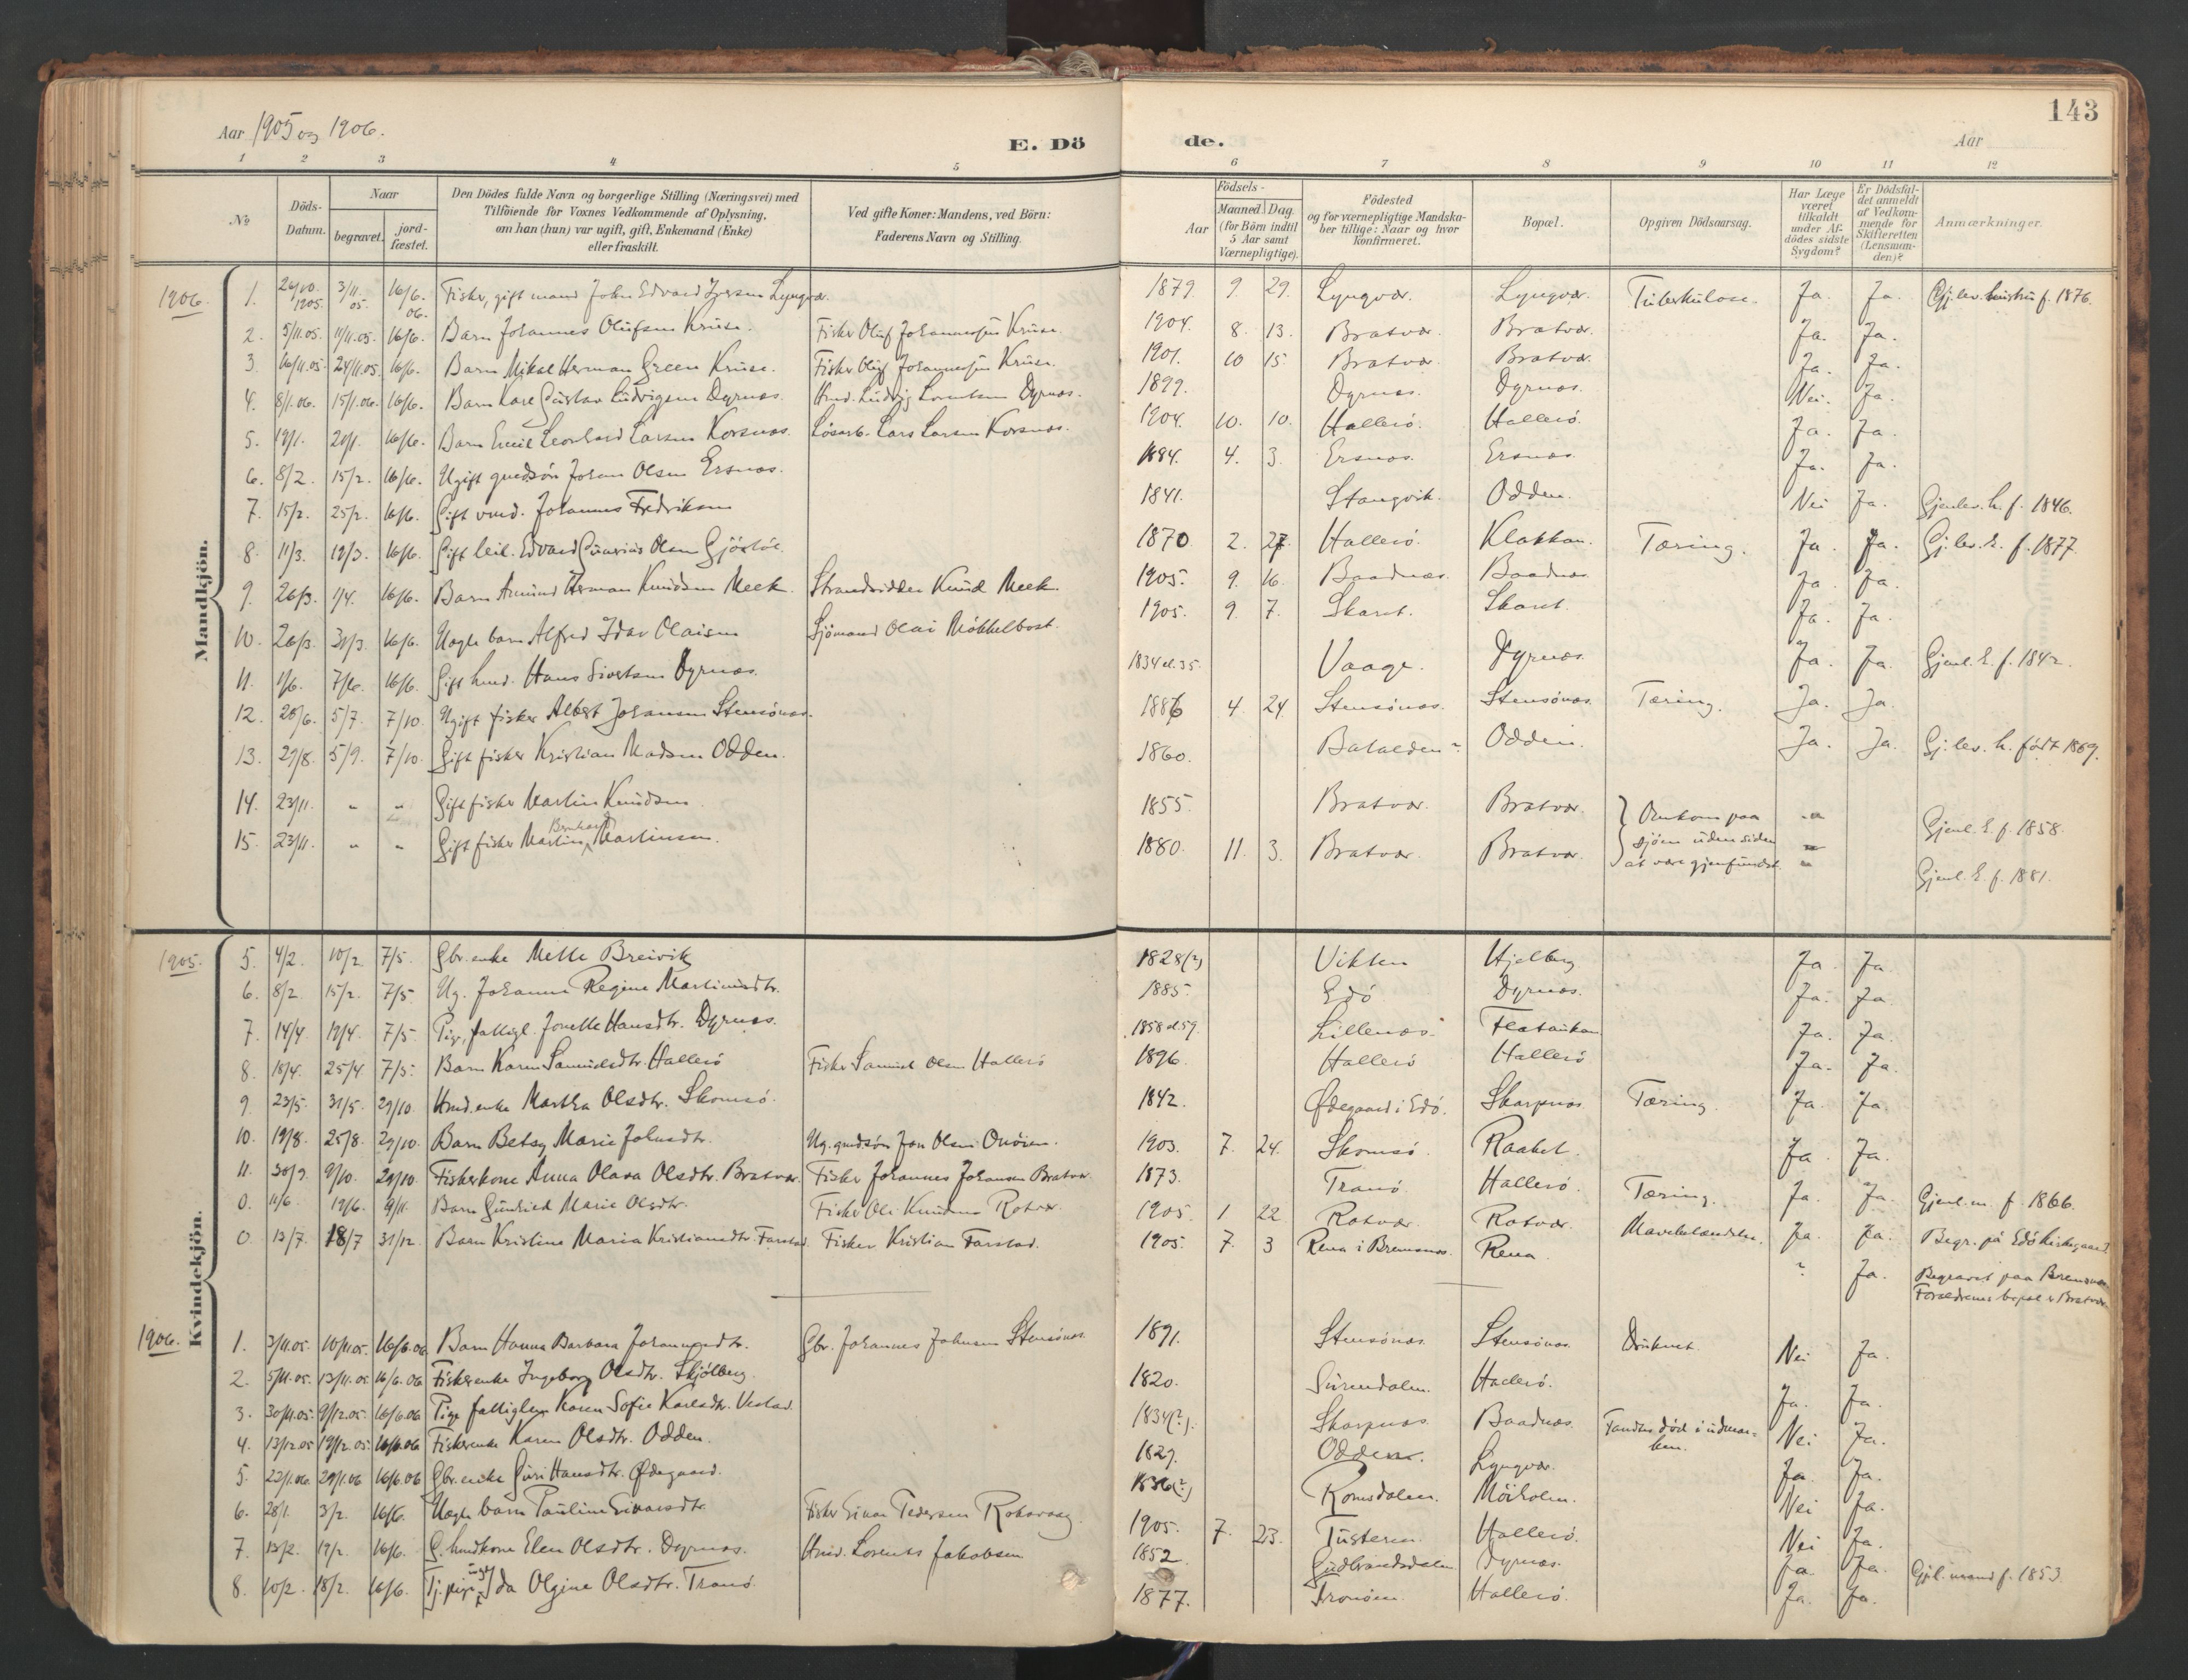 143
Aar 1905 og 1906.
E. Dö
de.
Aar
1 2 3 4 5 6 7 8 9 10 11 12
No
Döds-
Datum.
Naar
begravet.
jord-
fæstet.
Den Dödes fulde Navn og borgerlige Stilling (Næringsvei) med
Tilföiende for Voxnes Vedkommende af Oplysning,
om han (hun) var ugift, gift, Enkemand (Enke)
eller fraskilt.
Ved gifte Koner: Mandens, ved Börn:
Faderens Navn og Stilling.
Födsels-
Aar
Maaned. Dag
(for Börn indtil
5 Aar samt
Værnepligtige).
Födested
og for værnepligtige Mandska-
ber tillige: Naar og hvor
konfirmeret.
Bopæl.
Opgiven Dödsaarsag.
Har Læge
været
tilkaldt
under Af-
dödes sidste
Sygdom?
Er Dödsfal-
det anmeldt
af Vedkom-
mende for
Skifteretten
(Lensman-
den)?
Anmærkninger.
Mandkjön.
1906.
1. 26/10. 1905. 3/11. 05. 16/6. 06. Fisker, gift mand John Edvard Iversen Lyngvær. 1879. 9 29. Lyngvær. Lyngvær. Tuberkulose. Ja. Ja. Gj.lev. hustru f. 1876.
2. 5/11.05. 11/11.05. 16/6. Barn Johannes Olufsen Kruse. Fisker Oluf Johannesen Kruse. 1904. 8. 13. Bratvær. Bratvær. Ja. Ja.
3. 16/11.05. 24/11.05. 16/6. Barn Mikal Herman Green Kruse. Fisker Oluf Johannesen Kruse. 1901. 10 15. Bratvær. Bratvær. Ja. Ja.
4. 8/1.06. 15/1.06. 16/6. Barn Kare Gustav Ludvigsen Dyrnæs. Hmd. Ludvig Lorentsen Dyrnæs. 1899. Dyrnæs. Dyrnæs. Nei. Ja.
5. 19/1. 16/6. Barn Emil Leonhard Larsen Korsnæs. Løsarb. Lars Larsen Korsnæs. 1904. 10. 10. Hallerö. Hallerö. Ja. Ja.
6. 8/2. 15/2. 16/6. Ugift gmdsön Johan Olsen Ersnæs. 1884. 4. 3. Ersnæs. Ersnæs. Ja. Ja.
7. 15/2. 25/2. 16/6. Gift Johannes Fredriksen 1841. Stangvik. Odden. Nei Ja. Gjenlev. h. f. 1846.
8. 11/3. 19/3. 16/6. Gift leil. Edvard Olsen 1870 2. 27. Hallerö. Klakken. Tæring. Ja. Ja. Gj.lev. h. f. 1877.
9. 26/3. 1/4. 16/6. Barn Herman Knudsen Meek. Strandsidder Knud Meek. 1905. 9. 16. Baadnæs. Baadnæs. Ja. Ja.
10. 26/3. 31/3. 16/6. Uægte barn Alfred Idar Olaisen Sjömand Olai Möbkelbost. 1905. 9. 7. Skaret. Skaret. Ja. Ja.
11. 1/6. 7/6. 16/6. Gift hmd. Hans Sivertsen Dyrnæs. 1834 el. 35. Vaage. Dyrnæs. Ja. Ja. Gjenl. h. f. 1842.
12. 28/6. 5/7. 7/10. Ugift fisker Albert Johansen Stensönæs. 1886 4. 24. Stensönæs. Stensönæs. Tæring. Ja. Ja.
13. 29/8. 5/9. 7/10. Gift fisker Kristian Madsen Odden. 1860. Batalden? Odden. Ja. Ja. Gj.lev. h. födt 1869.
14. 23/11. " " Gift fisker Martin Knudsen 1855. Bratvær. Bratvær. Omkom paa " Gjenl. h. f. 1858.
15. 23/11. " " Gift fisker Martin Bernhard Martinsen. 1880. 11. 3. Bratvær. Bratvær. sjöen uden siden at være gjenfundet. " Gjenl. h. f. 1881.
Kvindekjön.
1905.
5. 4/2. 10/2. 7/5. Gbr.enke Mette Breivik 1828(?) Vikten Hjelberg Ja. Ja
6. 8/2. 15/2. 7/5. Ug. Johanne Regine Martinusdtr. 1885. Edö Dyrnæs. Ja. Ja.
7. 14/4. 19/4. 7/5. Pige, fattigl. Jonette Hansdtr. Dyrnæs. 1858 el. 59. Lillenæs. Ja. Ja.
8. 18/4. 25/4 7/5. Barn Karen Samuelsdtr. Hallerö Fisker Samuel Olsen Hallerö 1896. Hallerö Hallerö Ja. Ja.
9. 23/5. 31/5. 29/10. Hmd.enke Martha Olsdtr. Skomsö. 1842. Ødegaard i Edö. Skarpnæs Tæring. Ja. Ja
10. 19/8. 25/8. 29/10. Barn Betsy Marie Johnsdtr. Ug. gmdsön Jon Olsen 1903. 7. 24. Skomsö. Raaket. Ja. Ja.
11. 30/9. 9/10. 29/10. Fiskerkone Anna Olava Olsdtr. Bratvær. Fisker Johannes Johansen Bratvær 1873. Tranö. Hallerö. Tæring. Ja. Ja. Gjenl. m. f. 1866.
0. 11/6. 19/6. 9/11. Barn Gunhild Marie Olsdtr. Fisker Ole Knudsen Rotvær 1905. 1 22 Rotvær. Rotvær. Ja. Ja. Begr. på Edö Kirkegaard.
0. 13/7. 18/7 31/12. Barn Kristine Maria Kristiansdtr. Farstad. Fisker Kristian Farstad. 1905. 7. 3 Rena i Bremsnæs. Rena. ? Ja. Begravet paa Bremsnæs. Forældrenes bopæl er Bratvær.
1906.
1. 3/11.05. 10/11.05. 16/6.06 Barn Hanna Barbara Johannesdtr. Gbr. Johannes Johnsen Stensönæs. 1891. Stensönæs. Stensönæs. Druknet. Nei Ja.
2. 5/11.05. 13/11.05. 16/6.06 Fiskerenke Ingeborg Olsdtr. Skjölberg. 1820. Surendalen. Hallerö. Ja. Ja.
3. 30/11.05. 9/12.05. 16/6.06 Pige fattiglem Karen Sofie Karlsdtr. Vestad. 1834(?). Skarpnæs. Baadnæs. Fandtes död i udmar-ken. Nei Ja.
4. 13/12.05 19/12.05. 16/6.06 Fiskerenke Karen Olsdtr. Odden. 1829. Odden. Lyngvær. Ja. Ja.
5. 22/1.06. 29/1.06 16/6.06 Gbr. enke Guri Hansdtr. Ødegaard. 1836(?) Romsdalen. Möiholm. Nei Ja.
6. 28/1. 3/2. 16/6. Uægte barn Pauline Eivarsdtr. Fisker Eivar Pedersen 1905. 7. 23. Tusteren Hallerö. Nei Ja.
7. 13/2. 19/2. 16/6. G. hmdkone Elen Olsdtr. Dyrnæs. Hmd. Lorents Jakobsen 1852. Gudbrandsdalen Dyrnæs. Ja. Ja. Gjl. mand f. 1853.
8. 10/2. 18/2. 16/6. Tj. pige ugift Ida Olgine Olsdtr. Tranö. 1877. Hallerö. Ja. Ja.